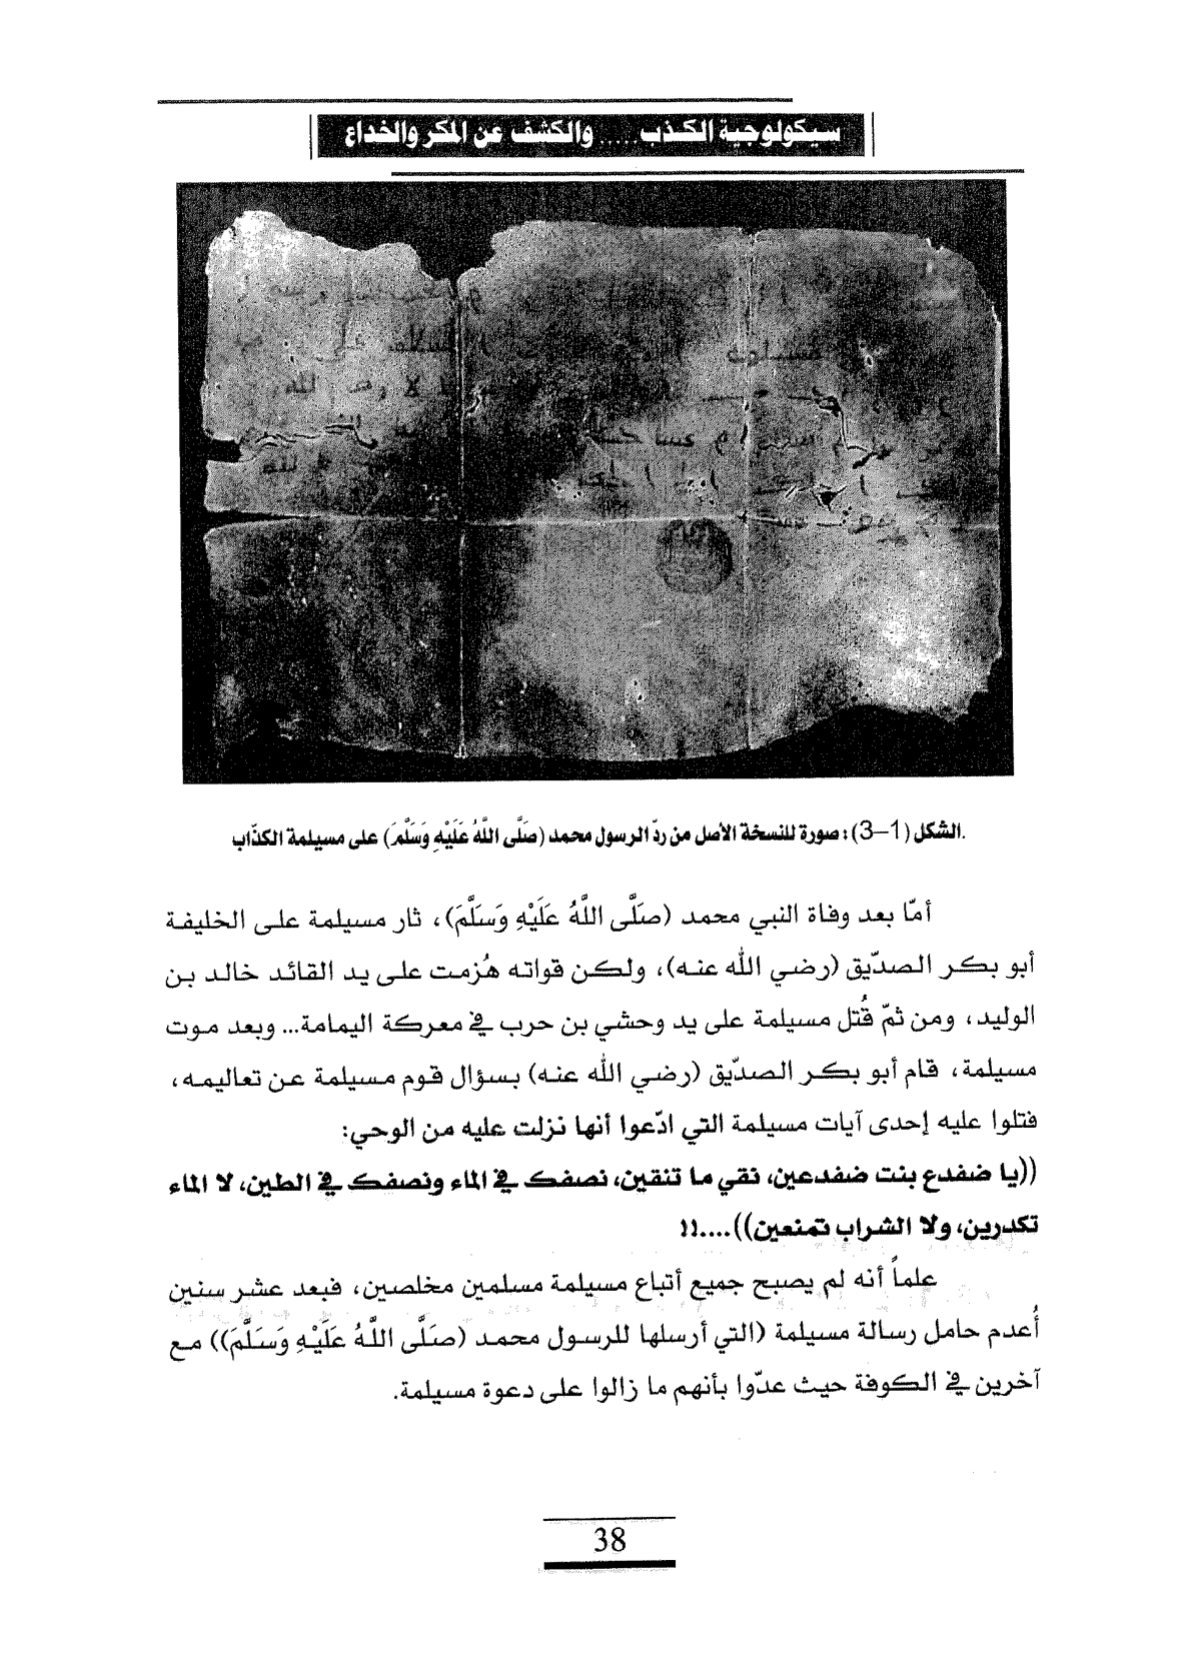 سيكولوجية الكذب ..... والكشف عن المكر والخداع
مسيلمة
الشكل (1-3): صورة للنسخة الأصل من ردّ الرسول محمد (صَلَّى اللَّهُ عَلَيْهِ وَسَلَّمَ) على مسيلمة الكذّاب.
أمّا بعد وفاة النبي محمد (صَلَّى اللَّهُ عَلَيْهِ وَسَلَّمَ)، ثار مسيلمة على الخليفة
أبو بكر الصدّيق (رضي الله عنه)، ولكن قواته هُزمت على يد القائد خالد بن
الوليد، ومن ثمّ قُتل مسيلمة على يد وحشي بن حرب في معركة اليمامة... وبعد موت
مسيلمة، قام أبو بكر الصدّيق (رضي الله عنه) بسؤال قوم مسيلمة عن تعاليمه،
فتلوا عليه إحدى آيات مسيلمة التي ادّعوا أنها نزلت عليه من الوحي:
((يا ضفدع بنت ضفدعين، نقي ما تنقين، نصفك في الماء ونصفك في الطين، لا الماء
تكدرين، ولا الشراب تمنعين))....!!
علماً أنه لم يصبح جميع أتباع مسيلمة مسلمين مخلصين، فبعد عشر سنين
أُعدم حامل رسالة مسيلمة (التي أرسلها للرسول محمد (صَلَّى اللَّهُ عَلَيْهِ وَسَلَّمَ)) مع
آخرين في الكوفة حيث عدّوا بأنهم ما زالوا على دعوة مسيلمة.
38